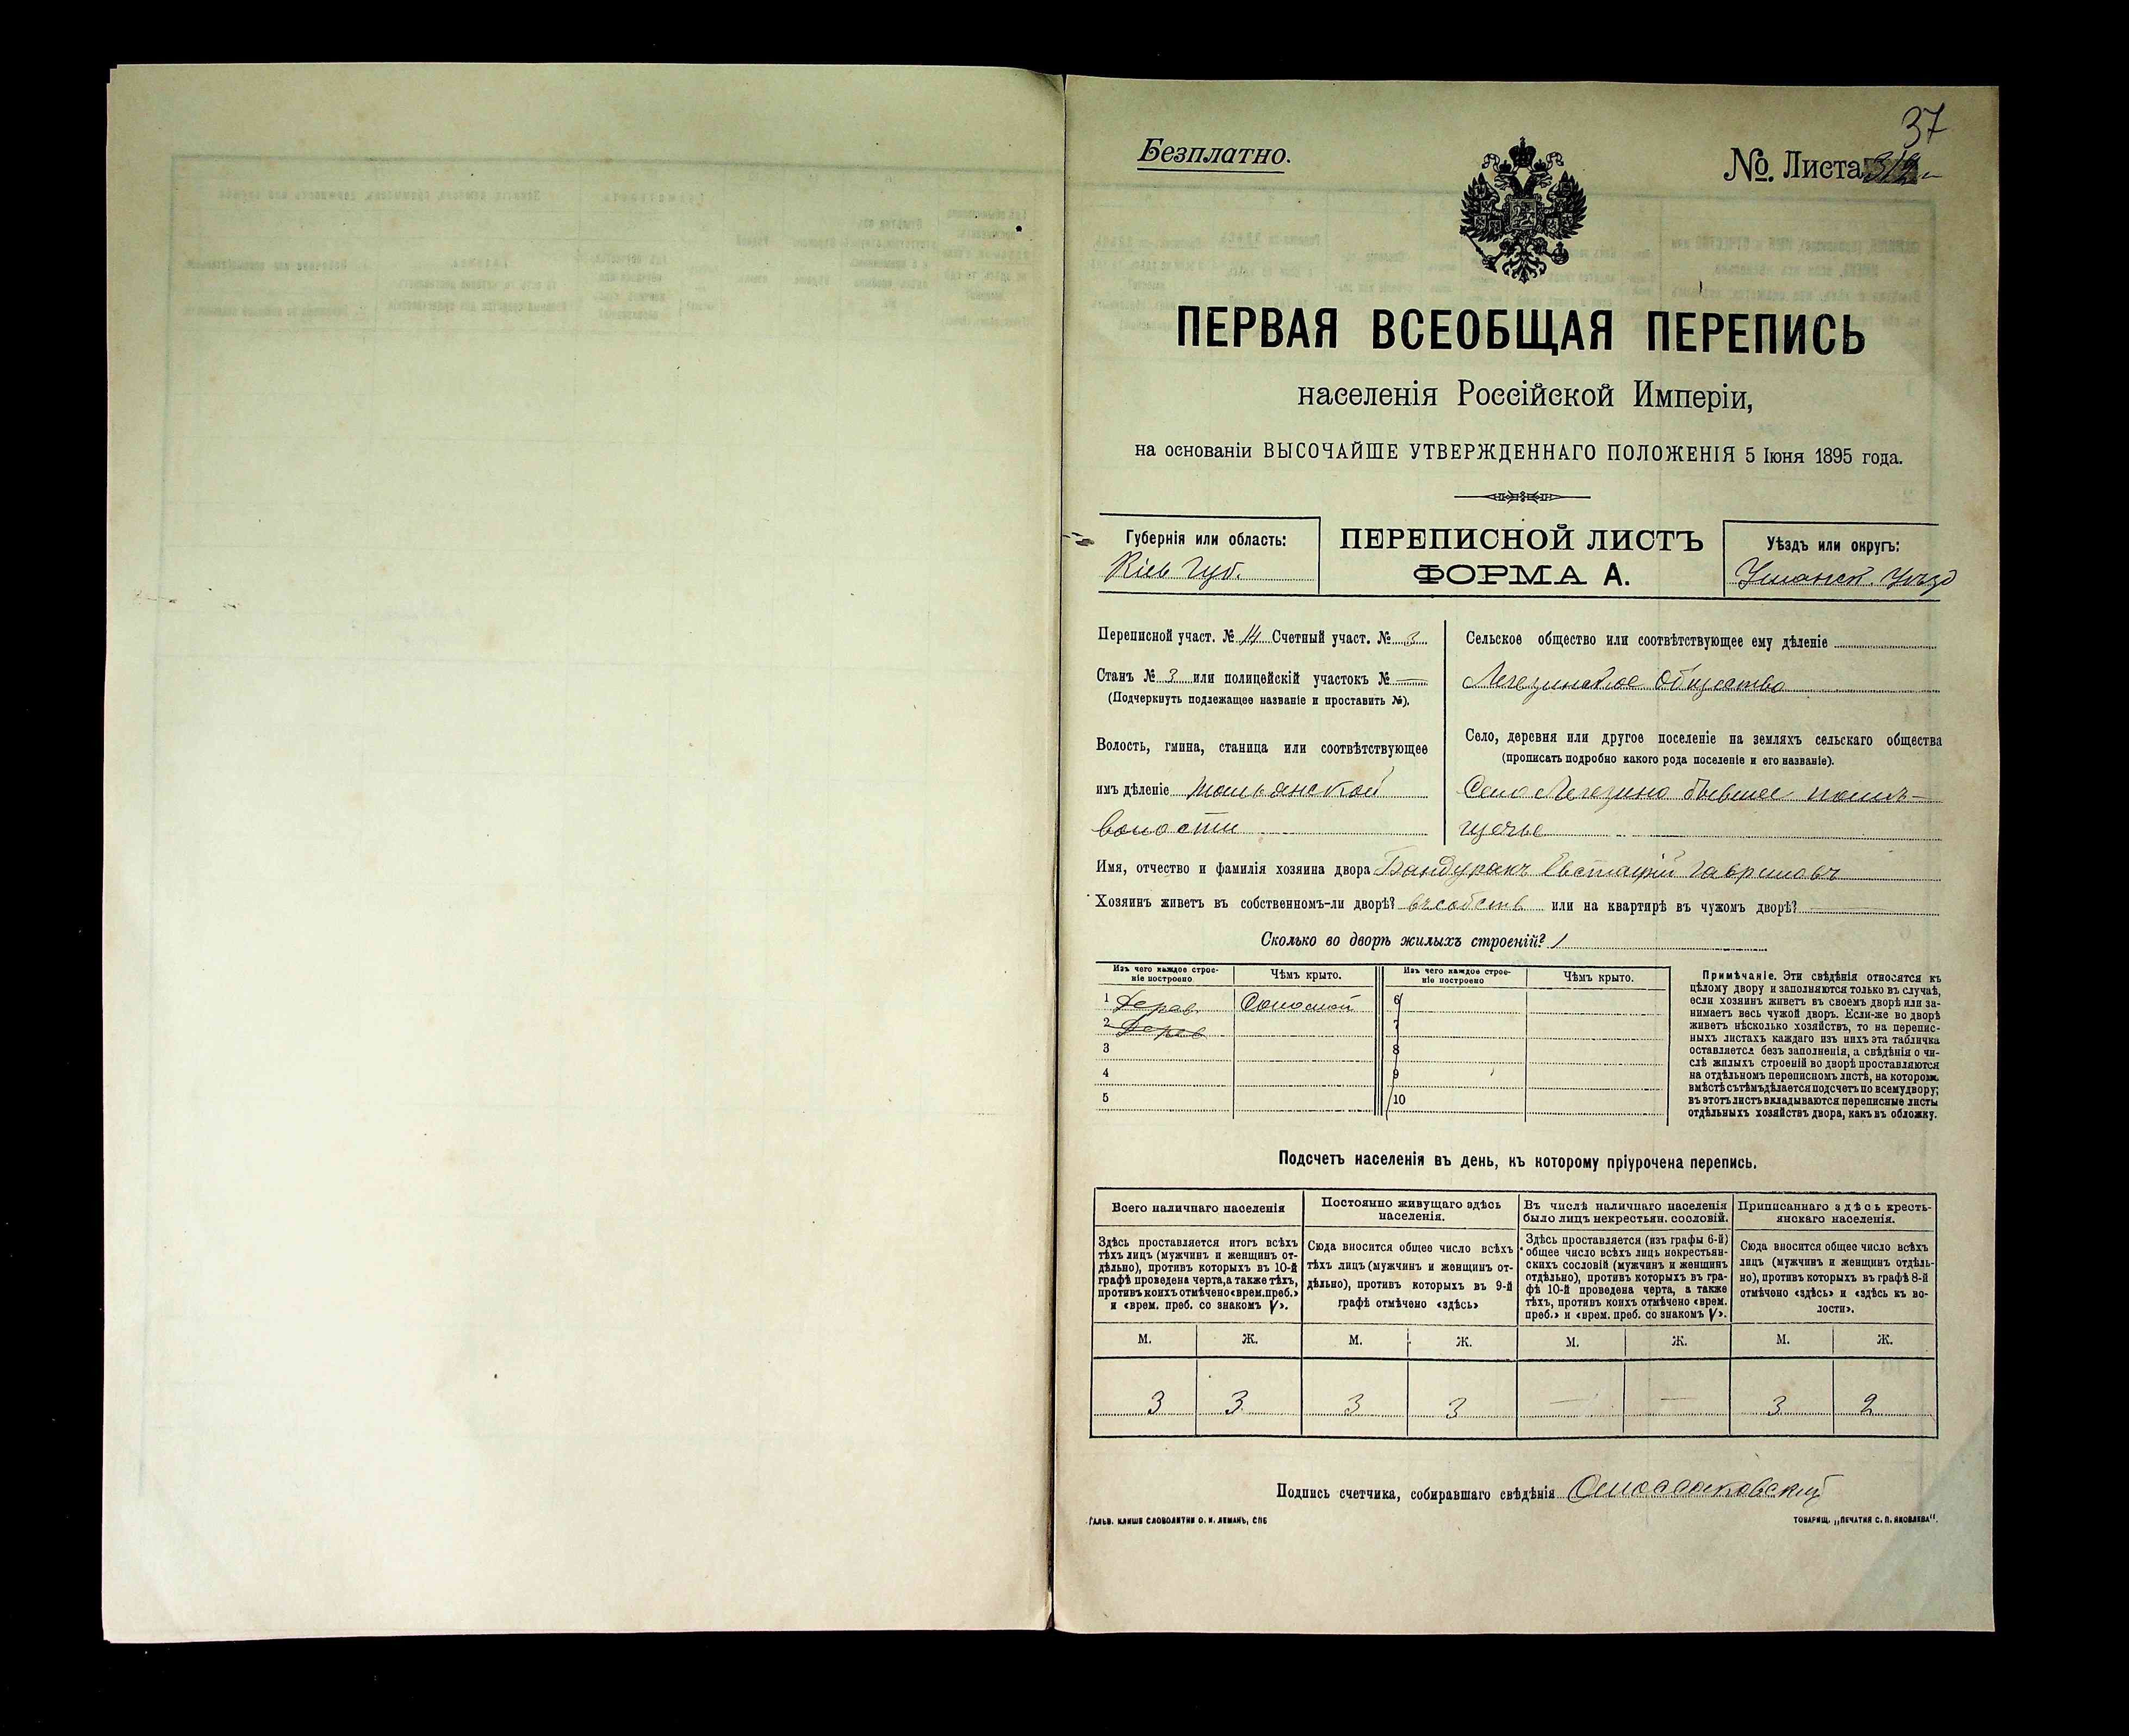 37
Безплатно.
№. Листа
ПЕРВАЯ ВСЕОБЩАЯ ПЕРЕПИСЬ
населенія Россійской Имперіи,
на основаніи ВЫСОЧАЙШЕ УТВЕРЖДЕННАГО ПОЛОЖЕНІЯ 5 Іюня 1895 года.
Губернія или область:
Кіев Губ.
ПЕРЕПИСНОЙ ЛИСТЪ
ФОРМА А.
Уѣздъ или округъ:
Уманск. Уѣзд
Переписной участ. № 14 Счетный участ. № 3
Станъ № 3 или полицейскій участокъ № —
(Подчеркнуть подлежащее названіе и проставить №).
Волость, гмина, станица или соотвѣтствующее
имъ дѣленіе
волости
Сельское общество или соотвѣтствующее ему дѣленіе
Легезинское Общество
Село, деревня или другое поселеніе на земляхъ сельскаго общества
(прописать подробно какого рода поселеніе и его названіе).
Село Легезино бывшее помѣ-
щечье
Имя, отчество и фамилія хозяина двора Бандуракъ Евстафій Гавриловъ
Хозяинъ живетъ въ собственномъ-ли дворѣ? въ собств или на квартирѣ въ чужомъ дворѣ? —
Сколько во дворѣ жилыхъ строеній? 1
Изъ чего каждое строе-
ніе построено
Чѣмъ крыто.
Изъ чего каждое строе-
ніе построено
Чѣмъ крыто.
1 Дерев. Соломой 6
2 Дерев 7
3 8
4 9
5 10
Примѣчаніе. Эти свѣдѣнія относятся къ
цѣлому двору и заполняются только въ случаѣ,
если хозяинъ живетъ въ своемъ дворѣ или за-
нимаетъ весь чужой дворъ. Если-же во дворѣ
живетъ нѣсколько хозяйствъ, то на перепис-
ныхъ листахъ каждаго изъ нихъ эта табличка
оставляется безъ заполненія, а свѣдѣнія о чи-
слѣ жилыхъ строеній во дворѣ проставляются
на отдѣльномъ переписномъ листѣ, на которомъ
вмѣстѣ съ тѣмъ дѣлается подсчетъ по всему двору;
въ этотъ листъ вкладываются переписные листы
отдѣльныхъ хозяйствъ двора, какъ въ обложку.
Подсчетъ населенія въ день, къ которому пріурочена перепись.
Всего наличнаго населенія
Здѣсь проставляется итогъ всѣхъ
тѣхъ лицъ (мужчинъ и женщинъ от-
дѣльно), противъ которыхъ въ 10-й
графѣ проведена черта, а также тѣхъ,
противъ коихъ отмѣчено «врем. преб.»
и «врем. преб. со знакомъ V».
Постоянно живущаго здѣсь
населенія.
Сюда вносится общее число всѣхъ
тѣхъ лицъ (мужчинъ и женщинъ от-
дѣльно), противъ которыхъ въ 9-й
графѣ отмѣчено «здѣсь»
Въ числѣ наличнаго населенія
было лицъ некрестьян. сословій.
Здѣсь проставляется (изъ графы 6-й)
общее число всѣхъ лицъ некрестьян-
скихъ сословій (мужчинъ и женщинъ
отдѣльно), противъ которыхъ въ гра-
фѣ 10-й проведена черта, а также
тѣхъ, противъ коихъ отмѣчено «врем.
преб.» и «врем. преб. со знакомъ V».
Приписаннаго здѣсь кресть-
янскаго населенія.
Сюда вносится общее число всѣхъ
лицъ (мужчинъ и женщинъ отдѣль-
но), противъ которыхъ въ графѣ 8-й
отмѣчено «здѣсь» и «здѣсь къ во-
лости».
М. Ж. М. Ж. М. Ж. М. Ж.
3 3 3 3 — — 3 2
Подпись счетчика, собиравшаго свѣдѣнія
ГАЛЬВ. КЛИШЕ СЛОВОЛИТНИ О. И. ЛЕМАНЪ, СПБ
ТОВАРИЩ. „ПЕЧАТНЯ С. П. ЯКОВЛЕВА“.